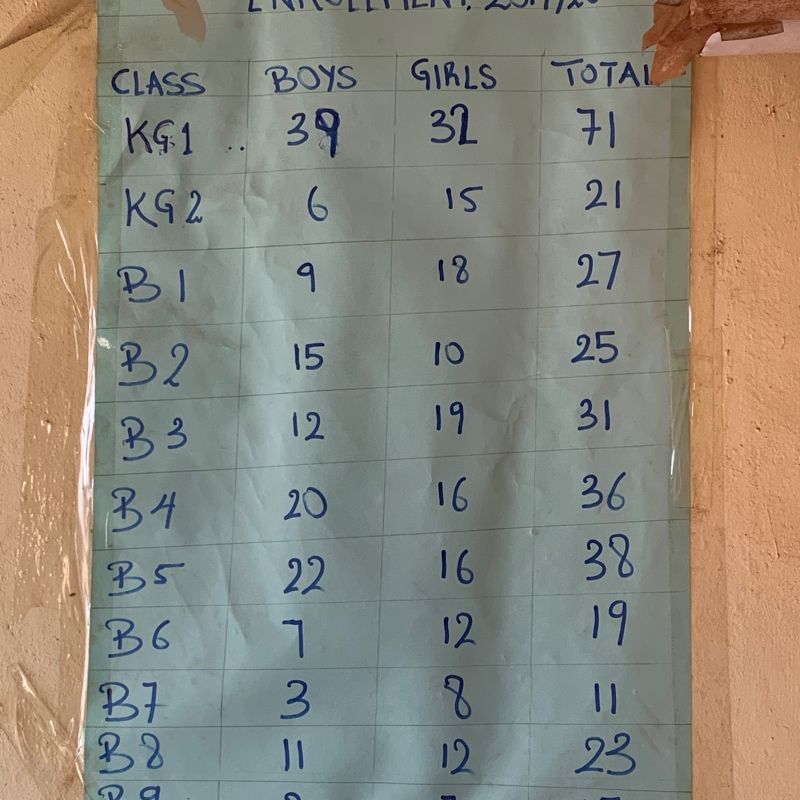 ENROLLMENT.
CLASS BOYS GIRLS TOTAL
KG1 .. 39 32 71
KG2 6 15 21
B1 9 18 27
B2 15 10 25
B3 12 19 31
B4 20 16 36
B5 22 16 38
B6 7 12 19
B7 3 8 11
B8 11 12 23
B9